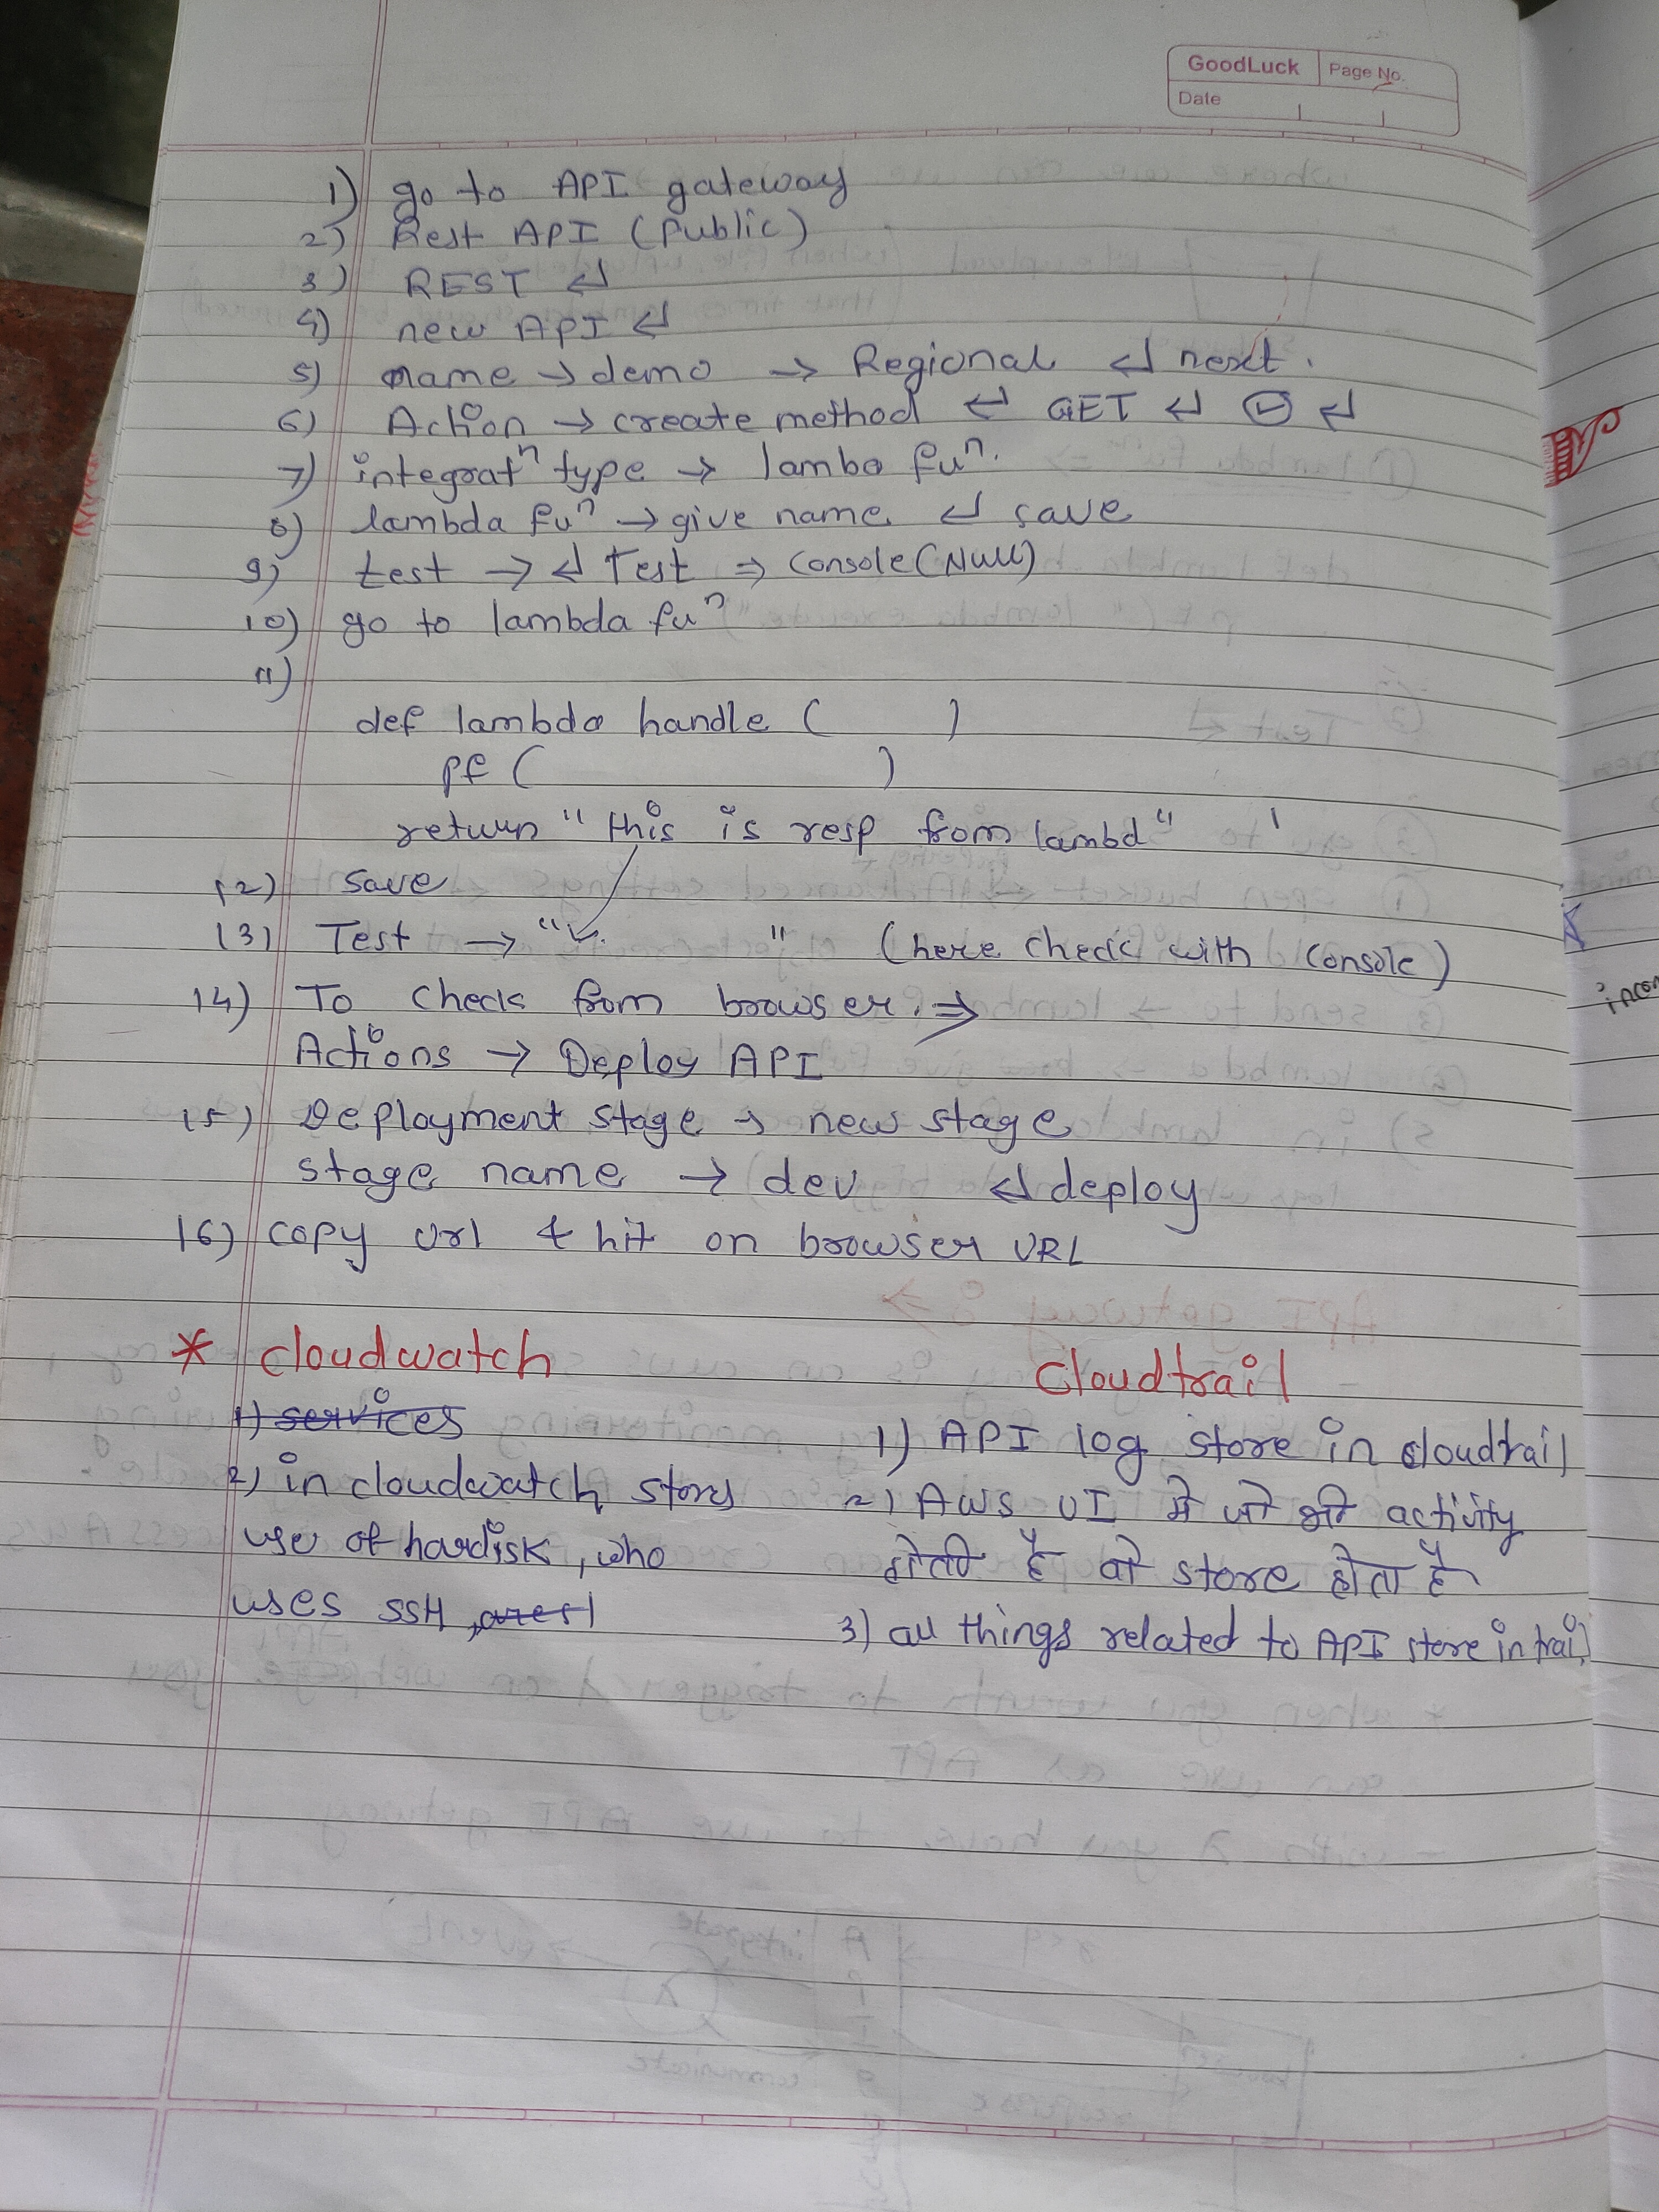 GoodLuck Page No.
Date
1) go to API gateway
2) Rest API (Public)
3) REST ↵
4) new API ↵
5) name → demo → Regional ↵ next.
6) Action → create method ↵ GET ↵ ☑ ↵
7) integratⁿ type → lambo fuⁿ.
8) lambda fuⁿ → give name ↵ save
9) test → ↵ Test ⇒ Console (Null)
10) go to lambda fuⁿ
11)
def lambda handle ( )
pf ( )
return "this is resp from lambd"
12) save
13) Test → " " (here check with console)
14) To check from browser. ⇒
Actions → Deploy API
15) Deployment stage → new stage
stage name → dev ↵ deploy
16) copy url & hit on browser URL
* cloudwatch
1) services
2) in cloudwatch store
use of hardisk, who
uses SSH,
Cloudtrail
1) API log store in cloudtrail
2) AWS UI मे जो भी activity
होती है वो store होता है
3) all things related to API store in trail